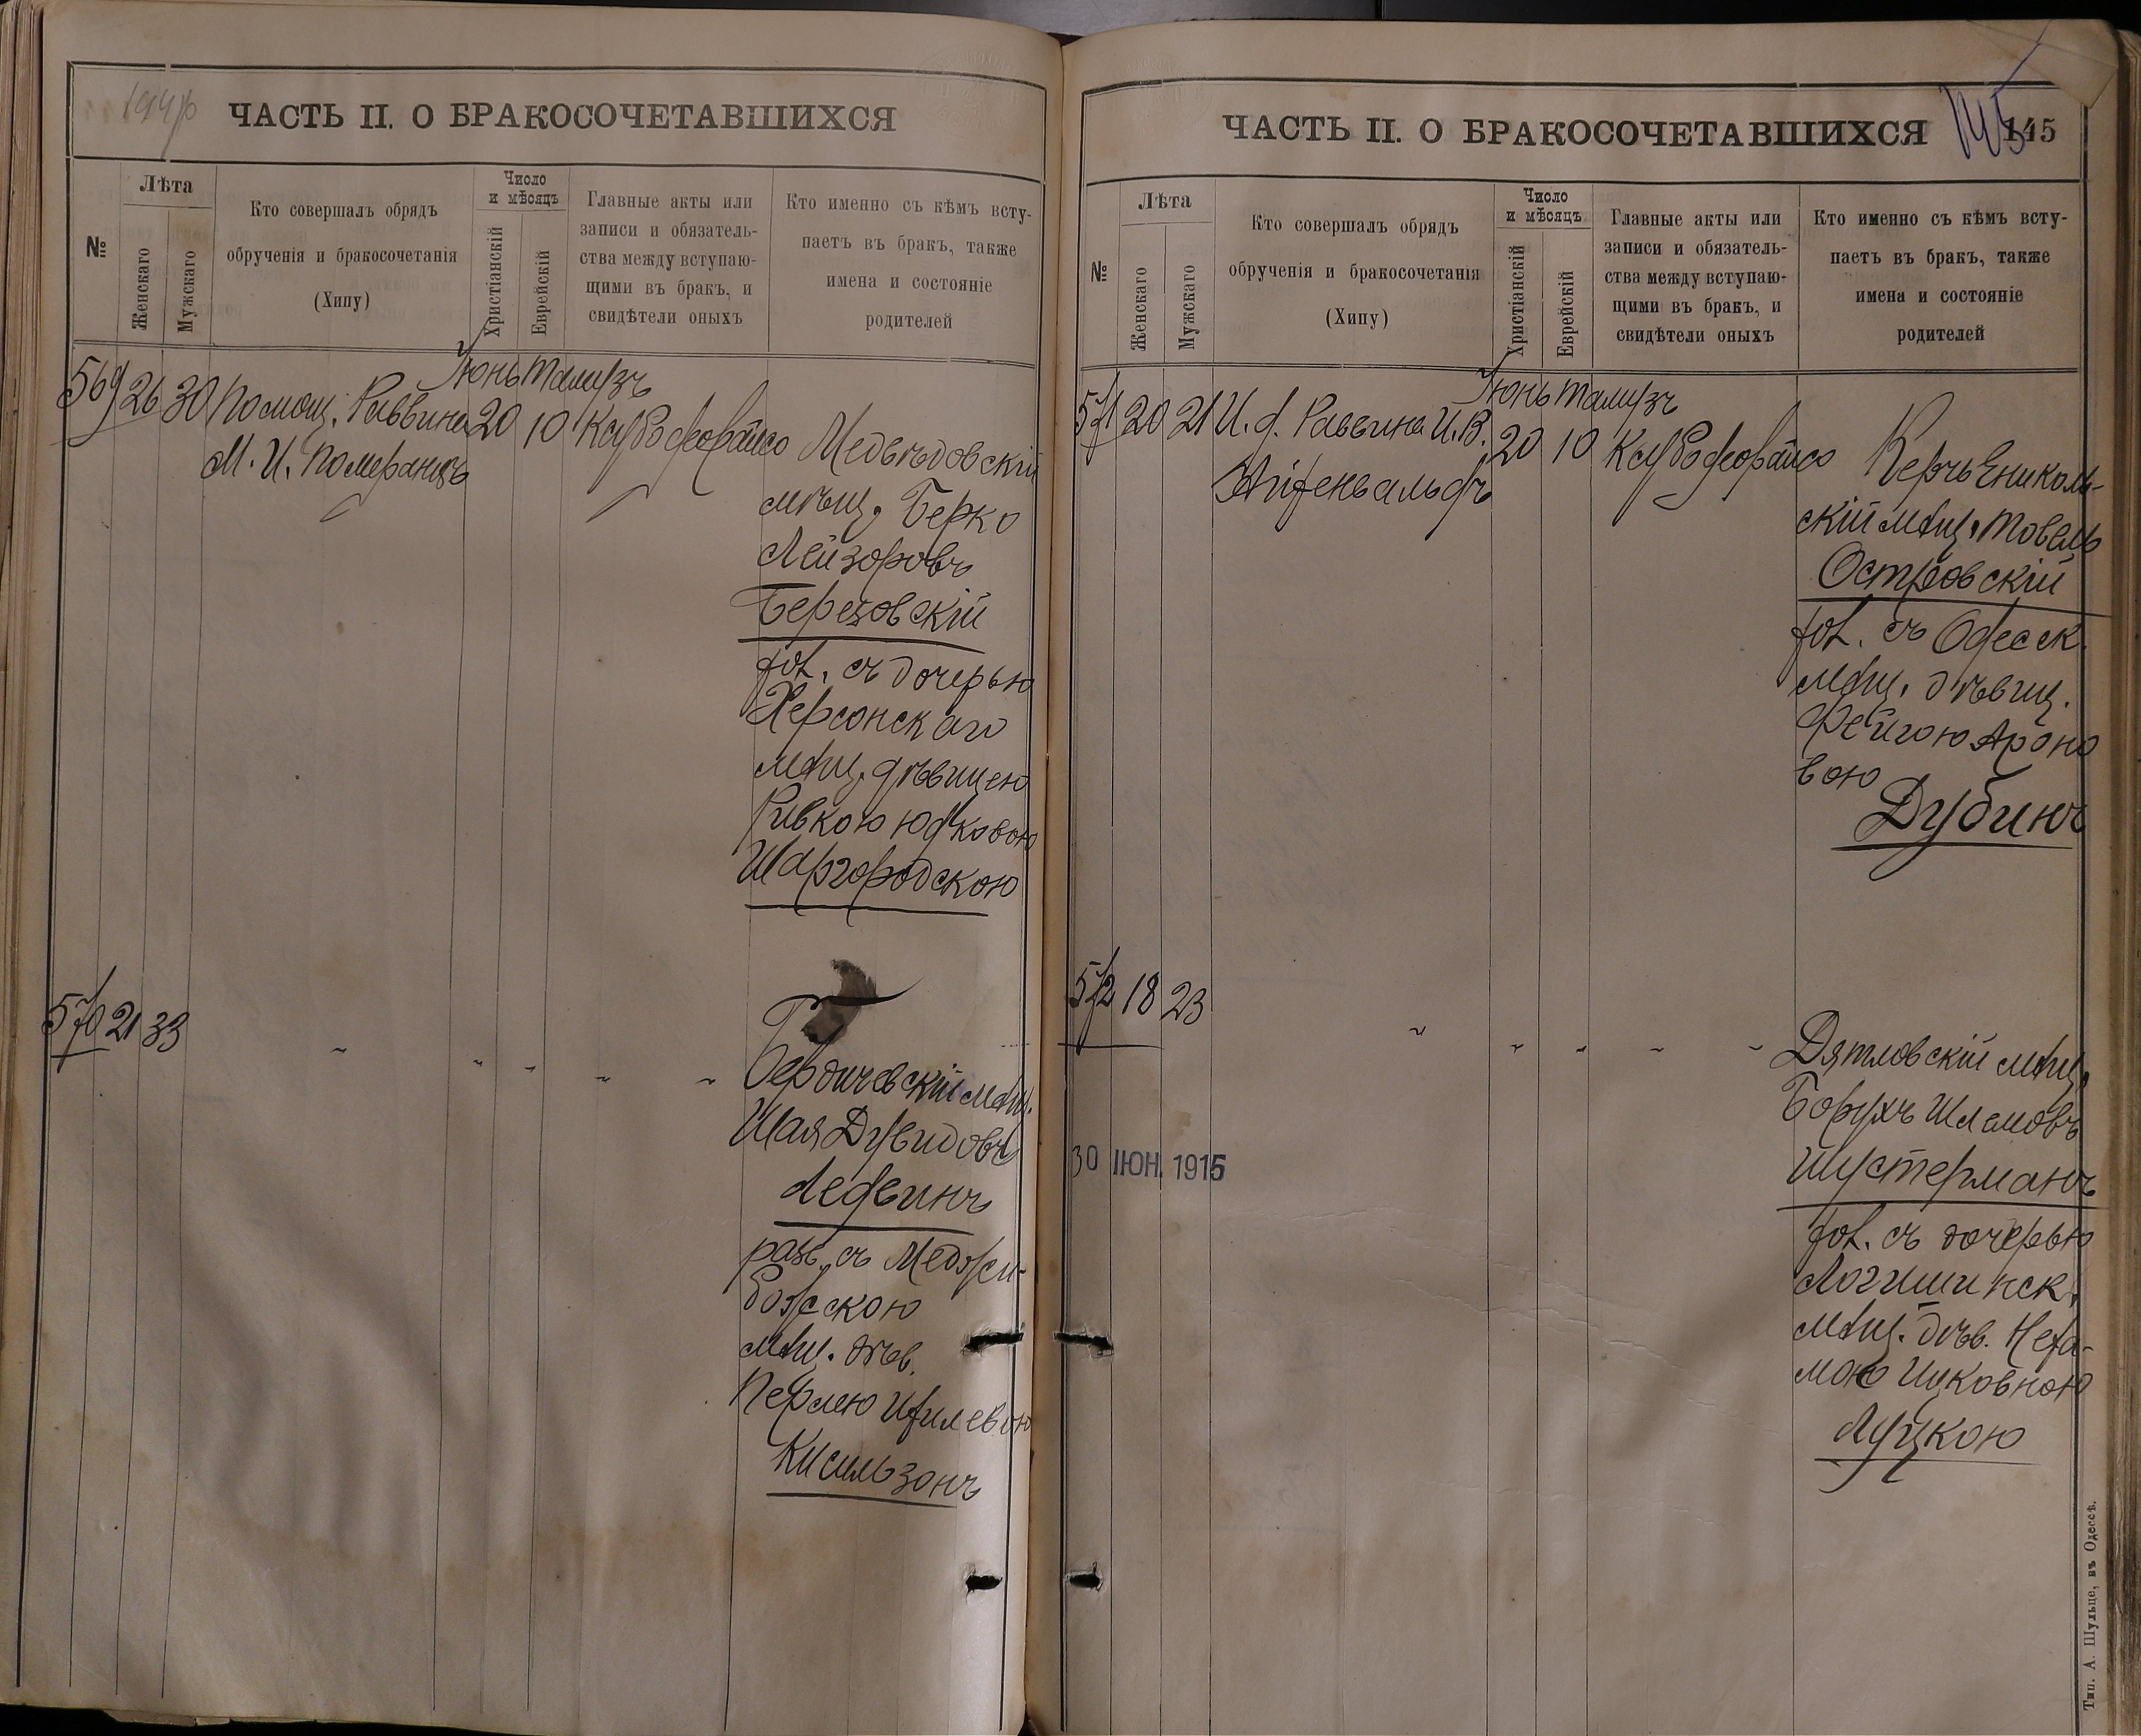 144р
ЧАСТЬ II. О БРАКОСОЧЕТАВШИХСЯ
№
Лѣта
Женскаго
Мужскаго
Кто совершалъ обрядъ
обрученія и бракосочетанія
(Хипу)
Число
и мѣсяцъ
Христіанскій
Еврейскій
Главные акты или
записи и обязатель-
ства между вступаю-
щими въ бракъ, и
свидѣтели оныхъ
Кто именно съ кѣмъ всту-
паетъ въ бракъ, также
имена и состояніе
родителей
Іюнь Тамузъ
569 26 30 Помощ. Раввина 20 10
М. И. Померанцъ
Медвѣдовскій
мѣщ. Берко
Лейзоровъ
Березовскій
хол. съ дочерью
Херсонскаго
мѣщ. дѣвицею
Ривкою Юдковою
Шаргородскою
570 21 33 " " " " "
Бердичевскій мѣщ.
Шая Дувидовъ
Ледвинъ
разв. съ Меджи-
божскою
мѣщ. дѣв.
Перлею
Кисильзонъ
ЧАСТЬ II. О БРАКОСОЧЕТАВШИХСЯ
145
145
№
Лѣта
Женскаго
Мужскаго
Кто совершалъ обрядъ
обрученія и бракосочетанія
(Хипу)
Число
и мѣсяцъ
Христіанскій
Еврейскій
Главные акты или
записи и обязатель-
ства между вступаю-
щими въ бракъ, и
свидѣтели оныхъ
Кто именно съ кѣмъ всту-
паетъ въ бракъ, также
имена и состояніе
родителей
Іюнь Тамузъ
571 20 21 И. д. Раввина И. В. 20 10
Айзенвальдъ
Керчь Ениколь-
скій мѣщ. Товель
Островскій
хол. съ Одесск.
мѣщ. дѣвиц.
Фейгою Ароно
вою
Дубинъ
572 18 23 " " " " "
Дятловскій мѣщ.
Борухъ Шлемовъ
Шустерманъ
хол. съ дочерью
Логишинск.
мѣщ. дѣв. Неха-
мою Ицковною
Луцкою
30 ІЮН. 1915
Тип. А. Шульце, въ Одессѣ.